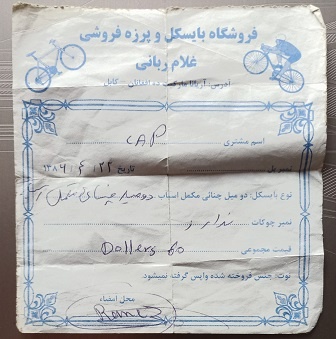 فروشگاه بایسکل و پرزه فروشی
غلام ربانی
آدرس: آریانا مارکیت
کابل
اسم مشتری CAP
تاریخ ۲۲ / ۶ / ۱۳۸۶
نوع بایسکل: دو میل چنائی مکمل اسباب
نمبر چوکات ندارد
قیمت مجموعی Dollers 60
نوت: جنس فروخته شده واپس گرفته نمیشود.
محل امضاء